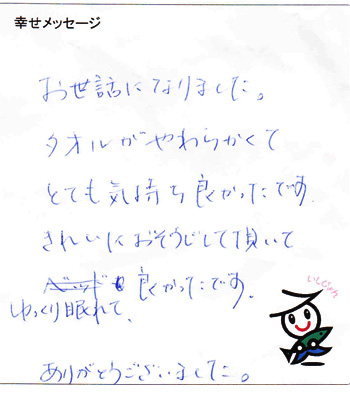 幸せメッセージ
お世話になりました。
タオルがやわらかくて
とても気持ち良かったです.
きれいにおそうじして頂いて
良かったです.
ゆっくり眠れて、
ありがとうございました。